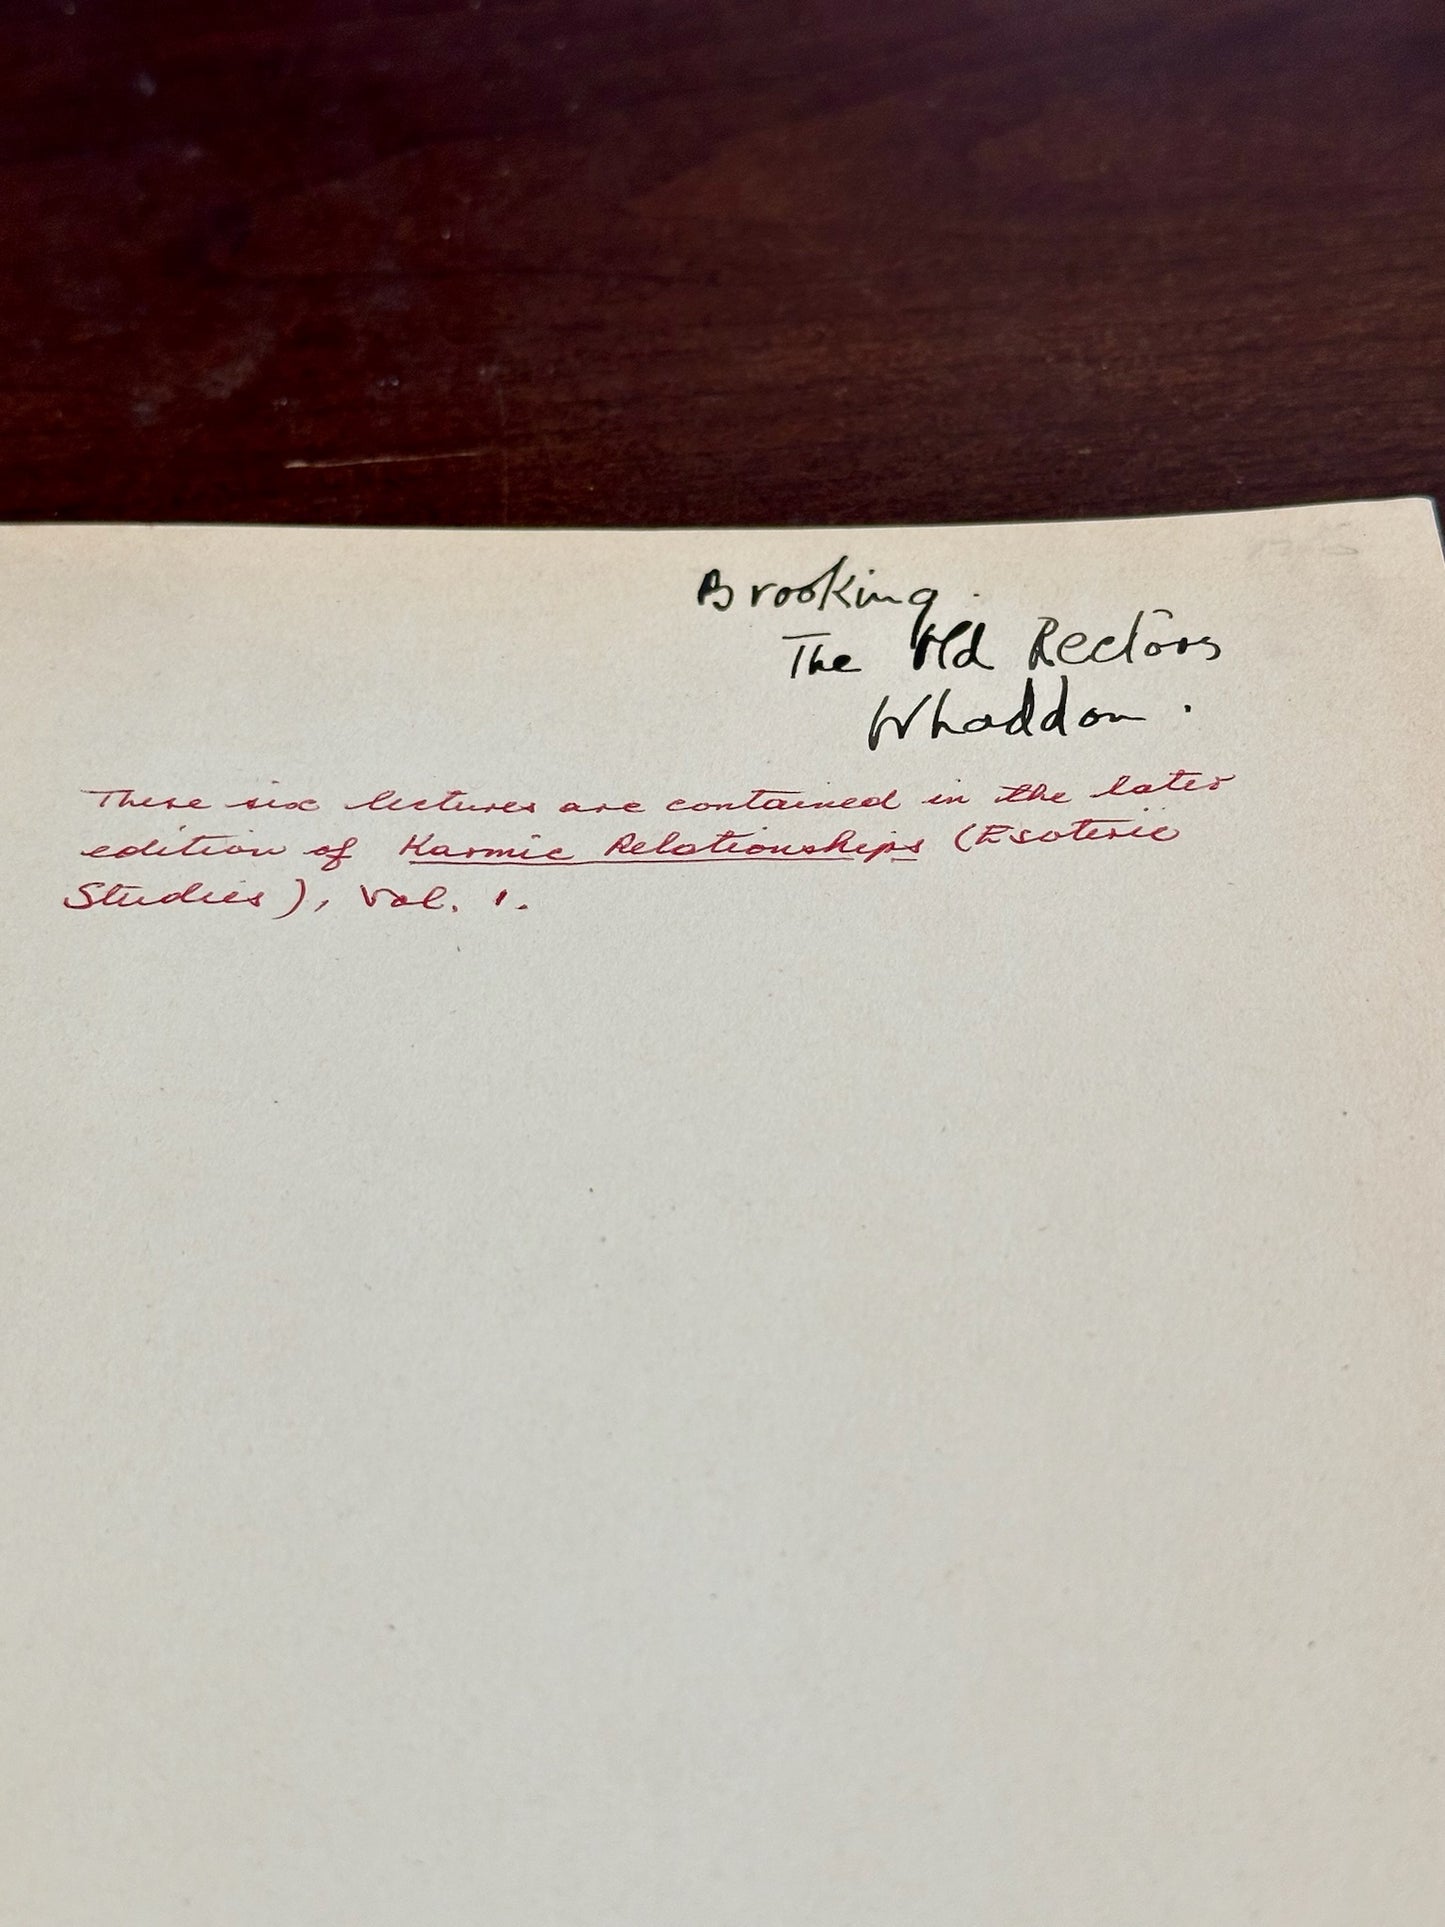 Brooking.
The Old Rectory
Whaddon.
These six lectures are contained in the later
edition of Karmic Relationships (Esoteric
Studies), Vol. 1.